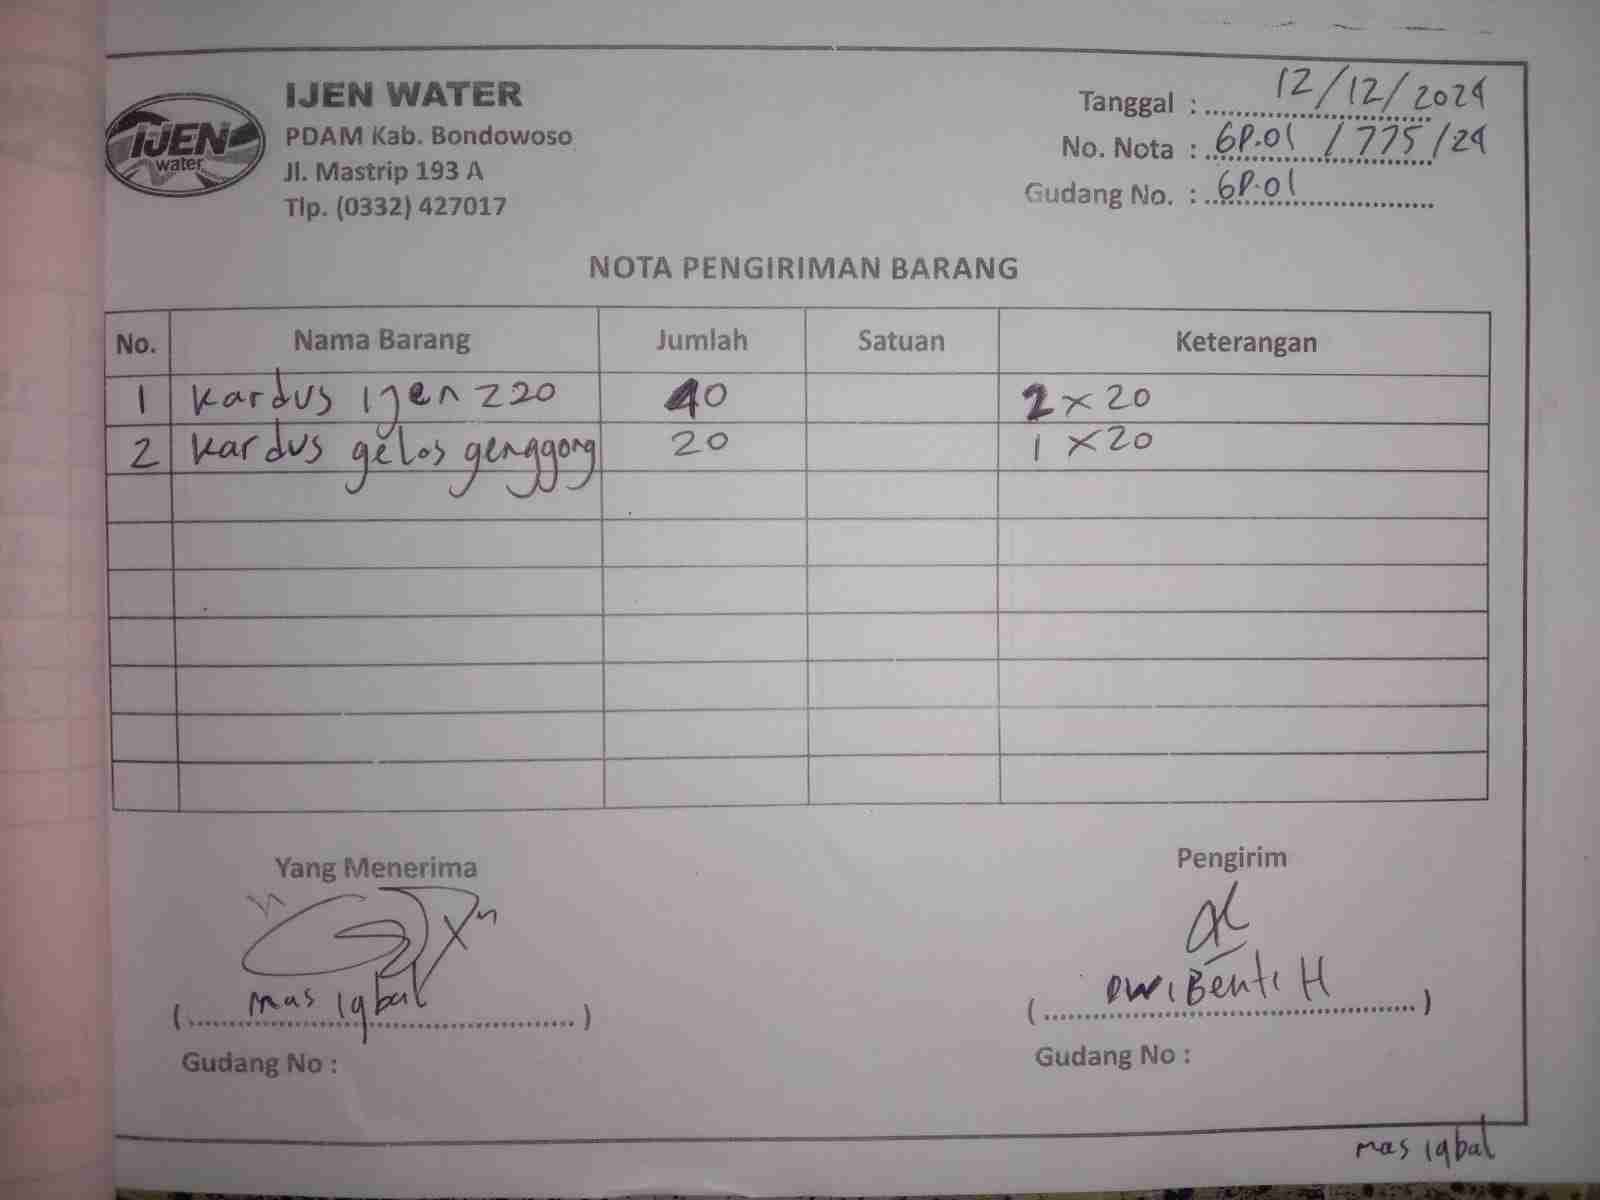 IJEN WATER
PDAM Kab. Bondowoso
Jl. Mastrip 193 A
Tlp. (0332) 427017
IJEN
water
Tanggal : 12/12/2024
No. Nota : GP.01 / 775/24
Gudang No. : GP.01
NOTA PENGIRIMAN BARANG
No. Nama Barang Jumlah Satuan Keterangan
1 Kardus ijen 220 40 2 x 20
2 Kardus gelos genggong 20 1 x 20
Yang Menerima Pengirim
(mas iqbal) (Dwi Benti H)
Gudang No : Gudang No :
mas iqbal